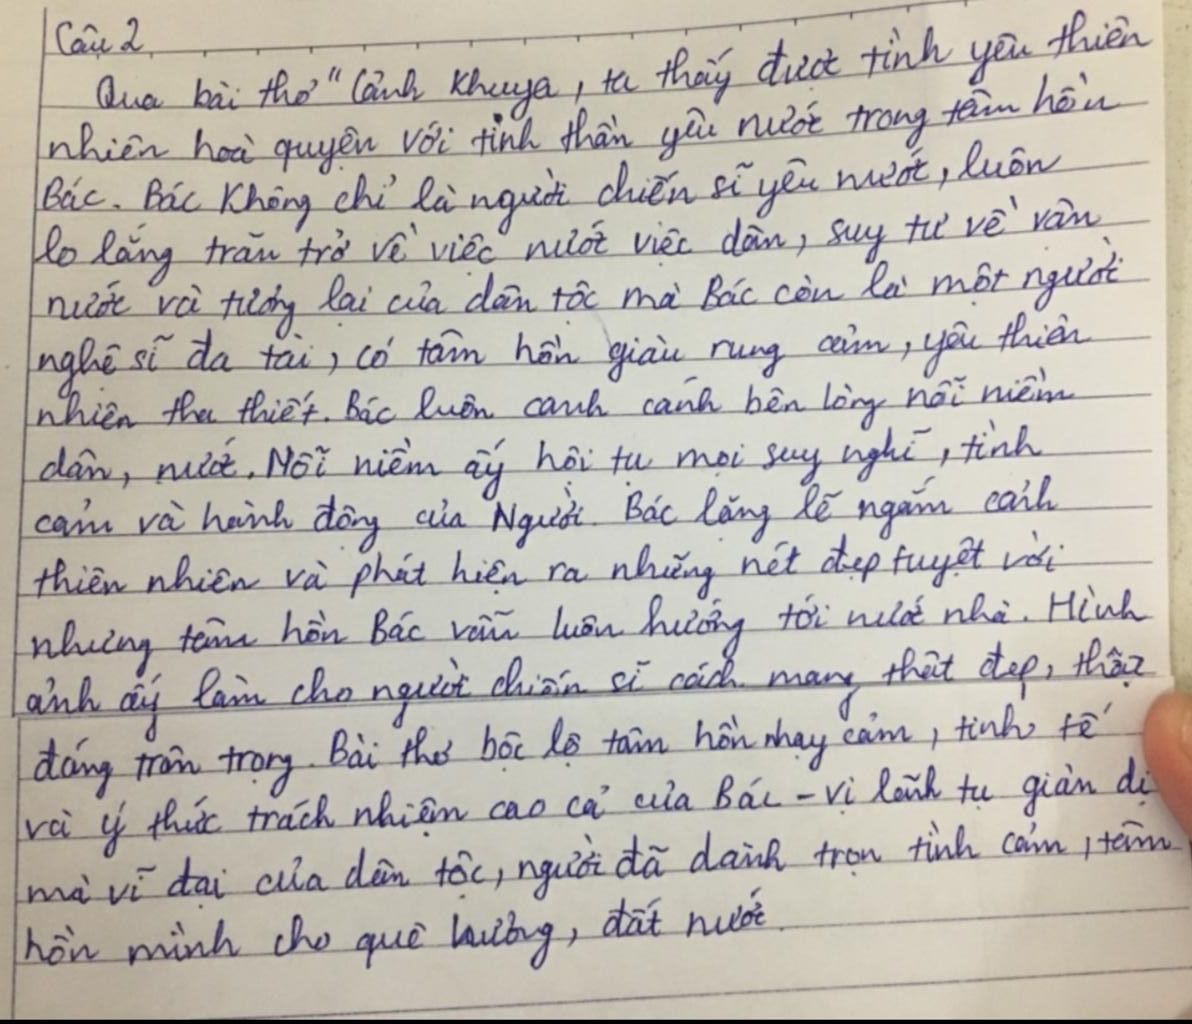 Câu 2
Qua bài thơ "Cảnh khuya, ta thấy được tình yêu thiên
nhiên hoà quyện với tinh thần yêu nước trong tâm hồn
Bác. Bác không chỉ là người chiến sĩ yêu nước, luôn
lo lắng trăn trở về việc nước việc dân, suy tư về vận
nước và tương lai của dân tộc mà Bác còn là một người
nghệ sĩ đa tài, có tâm hồn giàu rung cảm, yêu thiên
nhiên tha thiết. Bác luôn canh cánh bên lòng nỗi niềm
dân, nước. Nỗi niềm ấy hội tụ mọi suy nghĩ, tình
cảm và hành động của Người. Bác lặng lẽ ngắm cảnh
thiên nhiên và phát hiện ra những nét đẹp tuyệt vời
nhưng tâm hồn Bác vẫn luôn hướng tới nước nhà. Hình
ảnh ấy làm cho người chiến sĩ cách mạng thật đẹp, thật
đáng trân trọng. Bài thơ bộc lộ tâm hồn nhạy cảm, tinh tế
và ý thức trách nhiệm cao cả của Bác - vị lãnh tụ giản dị
mà vĩ đại của dân tộc, người đã dành trọn tình cảm, tâm
hồn mình cho quê hương, đất nước.